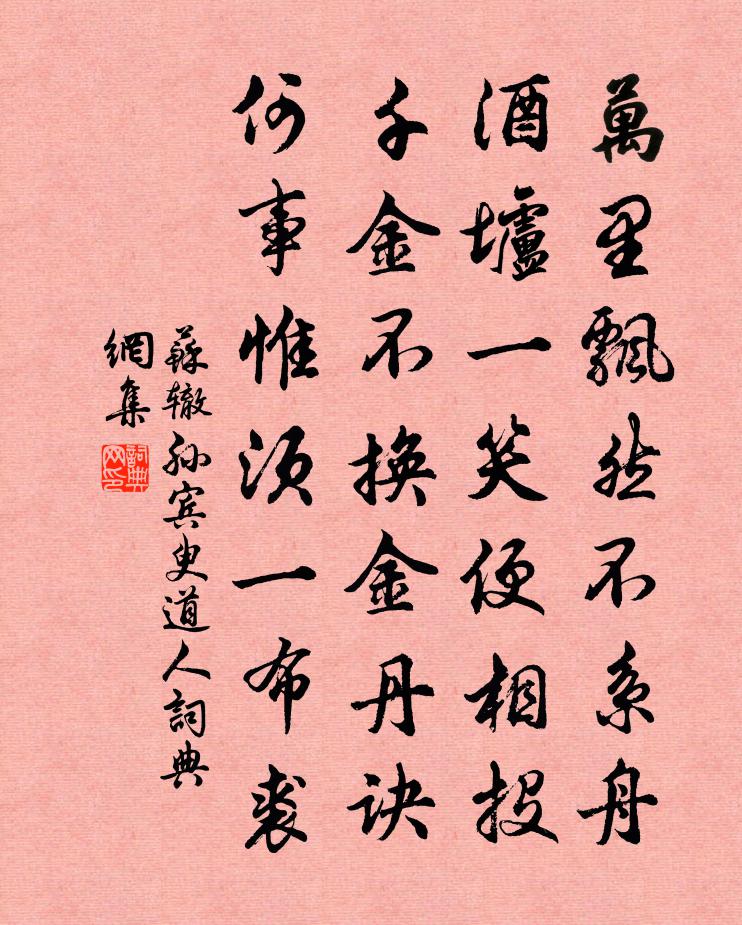 萬里飄然不系舟
酒壚一笑便相投
千金不換金丹诀
何事惟須一布裘
蘇辙孙宾叟道人詞典
網集
詞典網印